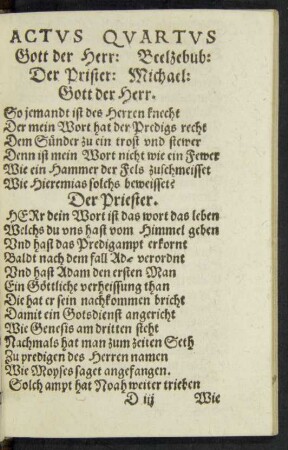 ACTVS QVARTVS
Gott der Herr: Beelzebub:
Der Prister: Michael:
Gott der Herr.
So jemandt ist des Herren knecht
Der mein Wort hat der Predigs recht
Dem Sünder zu ein trost vnd stewer
Denn ist mein Wort nicht wie ein Fewer
Wie ein Hammer der Fels zuschmeisset
Wie Hieremias solchs beweisset?
Der Priester.
HERr dein Wort ist das wort das leben
Welchs du vns hast vom Himmel geben
Vnd hast das Predigampt erkornt
Baldt nach dem fall Ade verordnt
Vnd hast Adam den ersten Man
Ein Göttliche verheissung than
Die hat er sein nachkommen bricht
Damit ein Gotsdienst angericht
Wie Genesis am dritten steht
Nachmals hat man zum zeiten Seth
Zu predigen des Herren namen
Wie Moyses saget angefangen.
Solch ampt hat Noah weiter trieben
D iij Wie